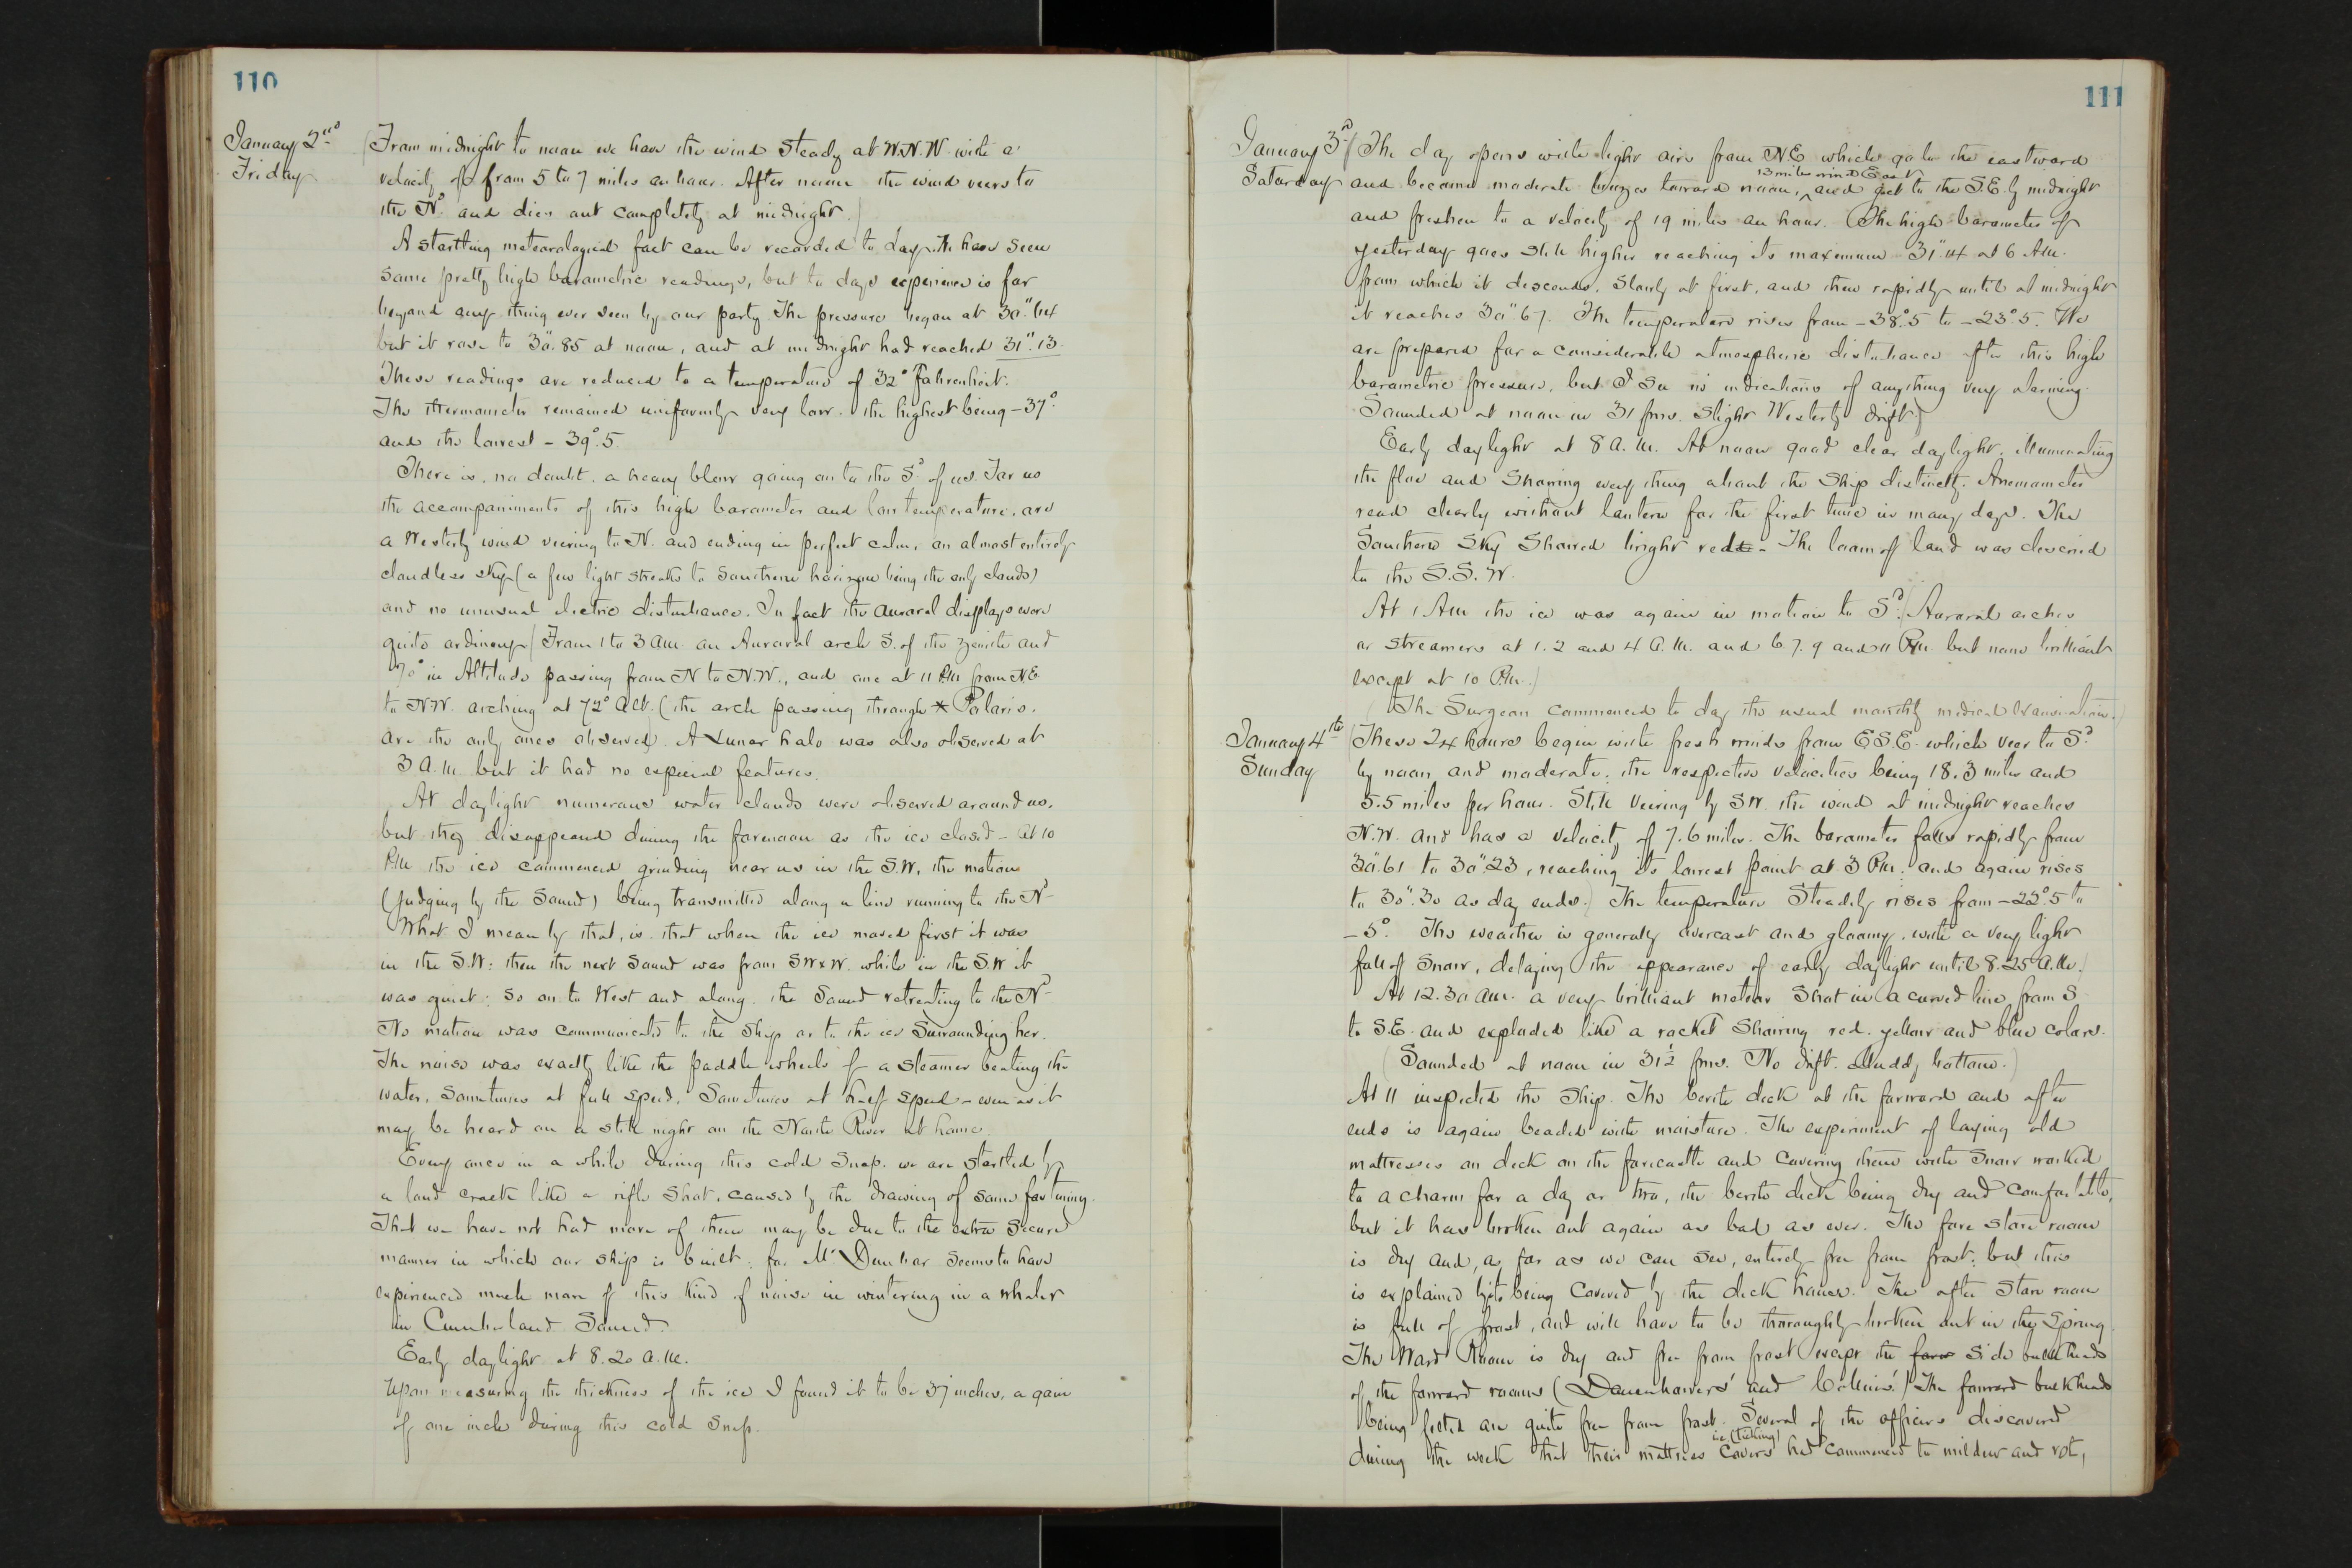 110
January 2nd
Friday
(From midnight to noon we have the wind steady at W.N.W. with a
velocity of from 5 to 7 miles an hour. After noon the wind veers to
the Nd. and dies out completely at midnight.)
A startling meteorological fact can be recorded to day. We have seen
some pretty high barometric readings, but to days experience is far
beyond any thing ever seen by our party. The pressure began at 30".64
but it rose to 30".85 at noon, and at midnight had reached 31".13.
These readings are reduced to a temperature of 32° Fahrenheit.
The thermometer remained uniformly very low. the highest being -37°.
and the lowest - 39°.5.
There is, no doubt, a heavy blow going on to the Sd. of us. For us
the accompaniments of this high barometer and low temperature, are
a Westerly wind veering to N. and ending in perfect calm, an almost entirely
cloudless sky (a few light streaks to Southern horizon being the only clouds)
and no unusual electric disturbance. In fact the auroral displays were
quite ordinary (From 1 to 3 am an Auroral arch S. of the zenith and
70° in Altitude passing from N to N.W., and one at 11 PM from NE
to N.W. arching at 72° alt. (the arch passing through * Polaris.
are the only ones observed). A Lunar halo was also observed at
3 A.M. but it had no especial features.
At daylight numerous water clouds were observed around us,
but they disappeared during the forenoon as the ice closed - At 10
P.M. the ice commenced grinding near us in the S.W, the motion
(judging by the sound) being transmitted along a line running to the Nd.
What I mean by that, is that when the ice moved first it was
in the S.W: then the next sound was from SWxW. while in the S.W it
was quiet: So on to West and along. the Sound retreating to the Nd.
No motion was communicated to the ship or to the ice surrounding her.
The noise was exactly like the paddle wheels of a steamer beating the
water, Sometimes at full speed, Sometimes at half speed - even as it
may be heard on a still night on the North River at home.
Every once in a while during this cold snap, we are startled by
a loud crack like a rifle shot, caused by the drawing of some fastening.
That we have not had more of them may be due to the extra secure
manner in which our ship is built; for Mr. Dunbar seems to have
experienced much more of this kind of noise in wintering in a whaler
in Cumberland Sound.
Early daylight at 8.20 a.m.
Upon measuring the thickness of the ice I found it to be 37 inches, a gain
of one inch during this cold snap.
111
January 3d
Saturday
(The day opens with light airs from N.E which go to the eastward
13 miles wind East
and become moderate breezes toward noon, ^ and get to the S.E. by midnight
and freshen to a velocity of 19 miles an hour. (The high barometer of
yesterday goes still higher reaching its maxemum 31".14 at 6 AM.
from which it descends, slowly at first, and then rapidly until at midnight
it reaches 30".67. The temperature rises from -38°.5 to -23°.5. We
are prepared for a considerable atmospheric disturbance after this high
barometric pressure, but I see no indications of anything very alarming.
Sounded at noon in 31 fms. Slight Westerly drift.)
Early daylight at 8 a.m. At noon good clear daylight, illuminating
the floe and Showing every thing about the Ship distinctly. Anemometer
read clearly without lantern for the first time in many days. The
Southern Sky Showed bright red - The loom of land was descried
to the S.S.W.
At 1 AM the ice was again in motion to Sd. (Auroral arches
or streamers at 1. 2 and 4 a.m. and 6 7. 9 and 11 P.M. but none brilliant
except at 10 P.M.)
(The Surgeon commenced to day the usual monthly medical examination.)
January 4th
Sunday
(These 24 hours begin with fresh winds from E.S.E. which veer to Sd.
by noon and moderate: the respective velocities being 18.3 miles and
5.5 miles per hour. Still veering by SW. the wind at midnight reaches
N.W. and has a velocity of 7.6 miles. The barometer falls rapidly from
30".61 to 30".23, reaching its lowest point at 3 P.M; and again rises
to 30".30 as day ends.) The temperature Steadily rises from -22°.5 to
-5°. The weather is generally overcast and gloomy, with a very light
fall of snow, delaying the appearance of early daylight until 8.25 A.M.)
At 12.30 am. a very brilliant meteor Shot in a curved line from S
to S.E. and exploded like a rocket Showing red. yellow and blue colors.
(Sounded at noon in 31½ fms. No drift. Muddy bottom.)
At 11 inspected the Ship. The berth deck at the forward and after
ends is again beaded with moisture. The experiment of laying old
mattresses on deck on the forecastle and Covering them with Snow worked
to a charm for a day or two, the berth deck being dry and comfortable,
but it has broken out again as bad as ever. The fore store room
is dry and, as far as we can see, entirely free from frost; but this
is explained by its being Covered by the deck house. The after Store room
is full of frost, and will have to be thoroughly broken out in the Spring.
The Ward Room is dry and free from frost except the fore side bulkheads
of the forward rooms (Danenhower's and Collins'.) The forward bulkheads
being felted are quite free from frost. Several of the officers discovered
ie (ticking)
during the week that their mattress Covers had commenced to mildew and rot,